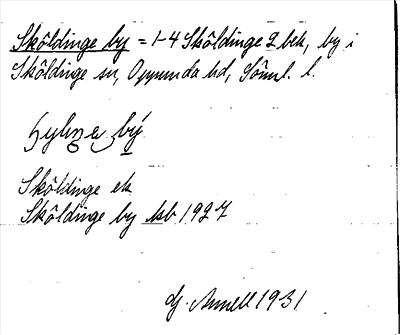 Sköldinge by = 1-4 Sköldinge 2 bek, by i
Sköldinge sn, Oppunda hd, Söml. l.
by
Sköldinge ek
Sköldinge by kb 1927
G. Annell 1931